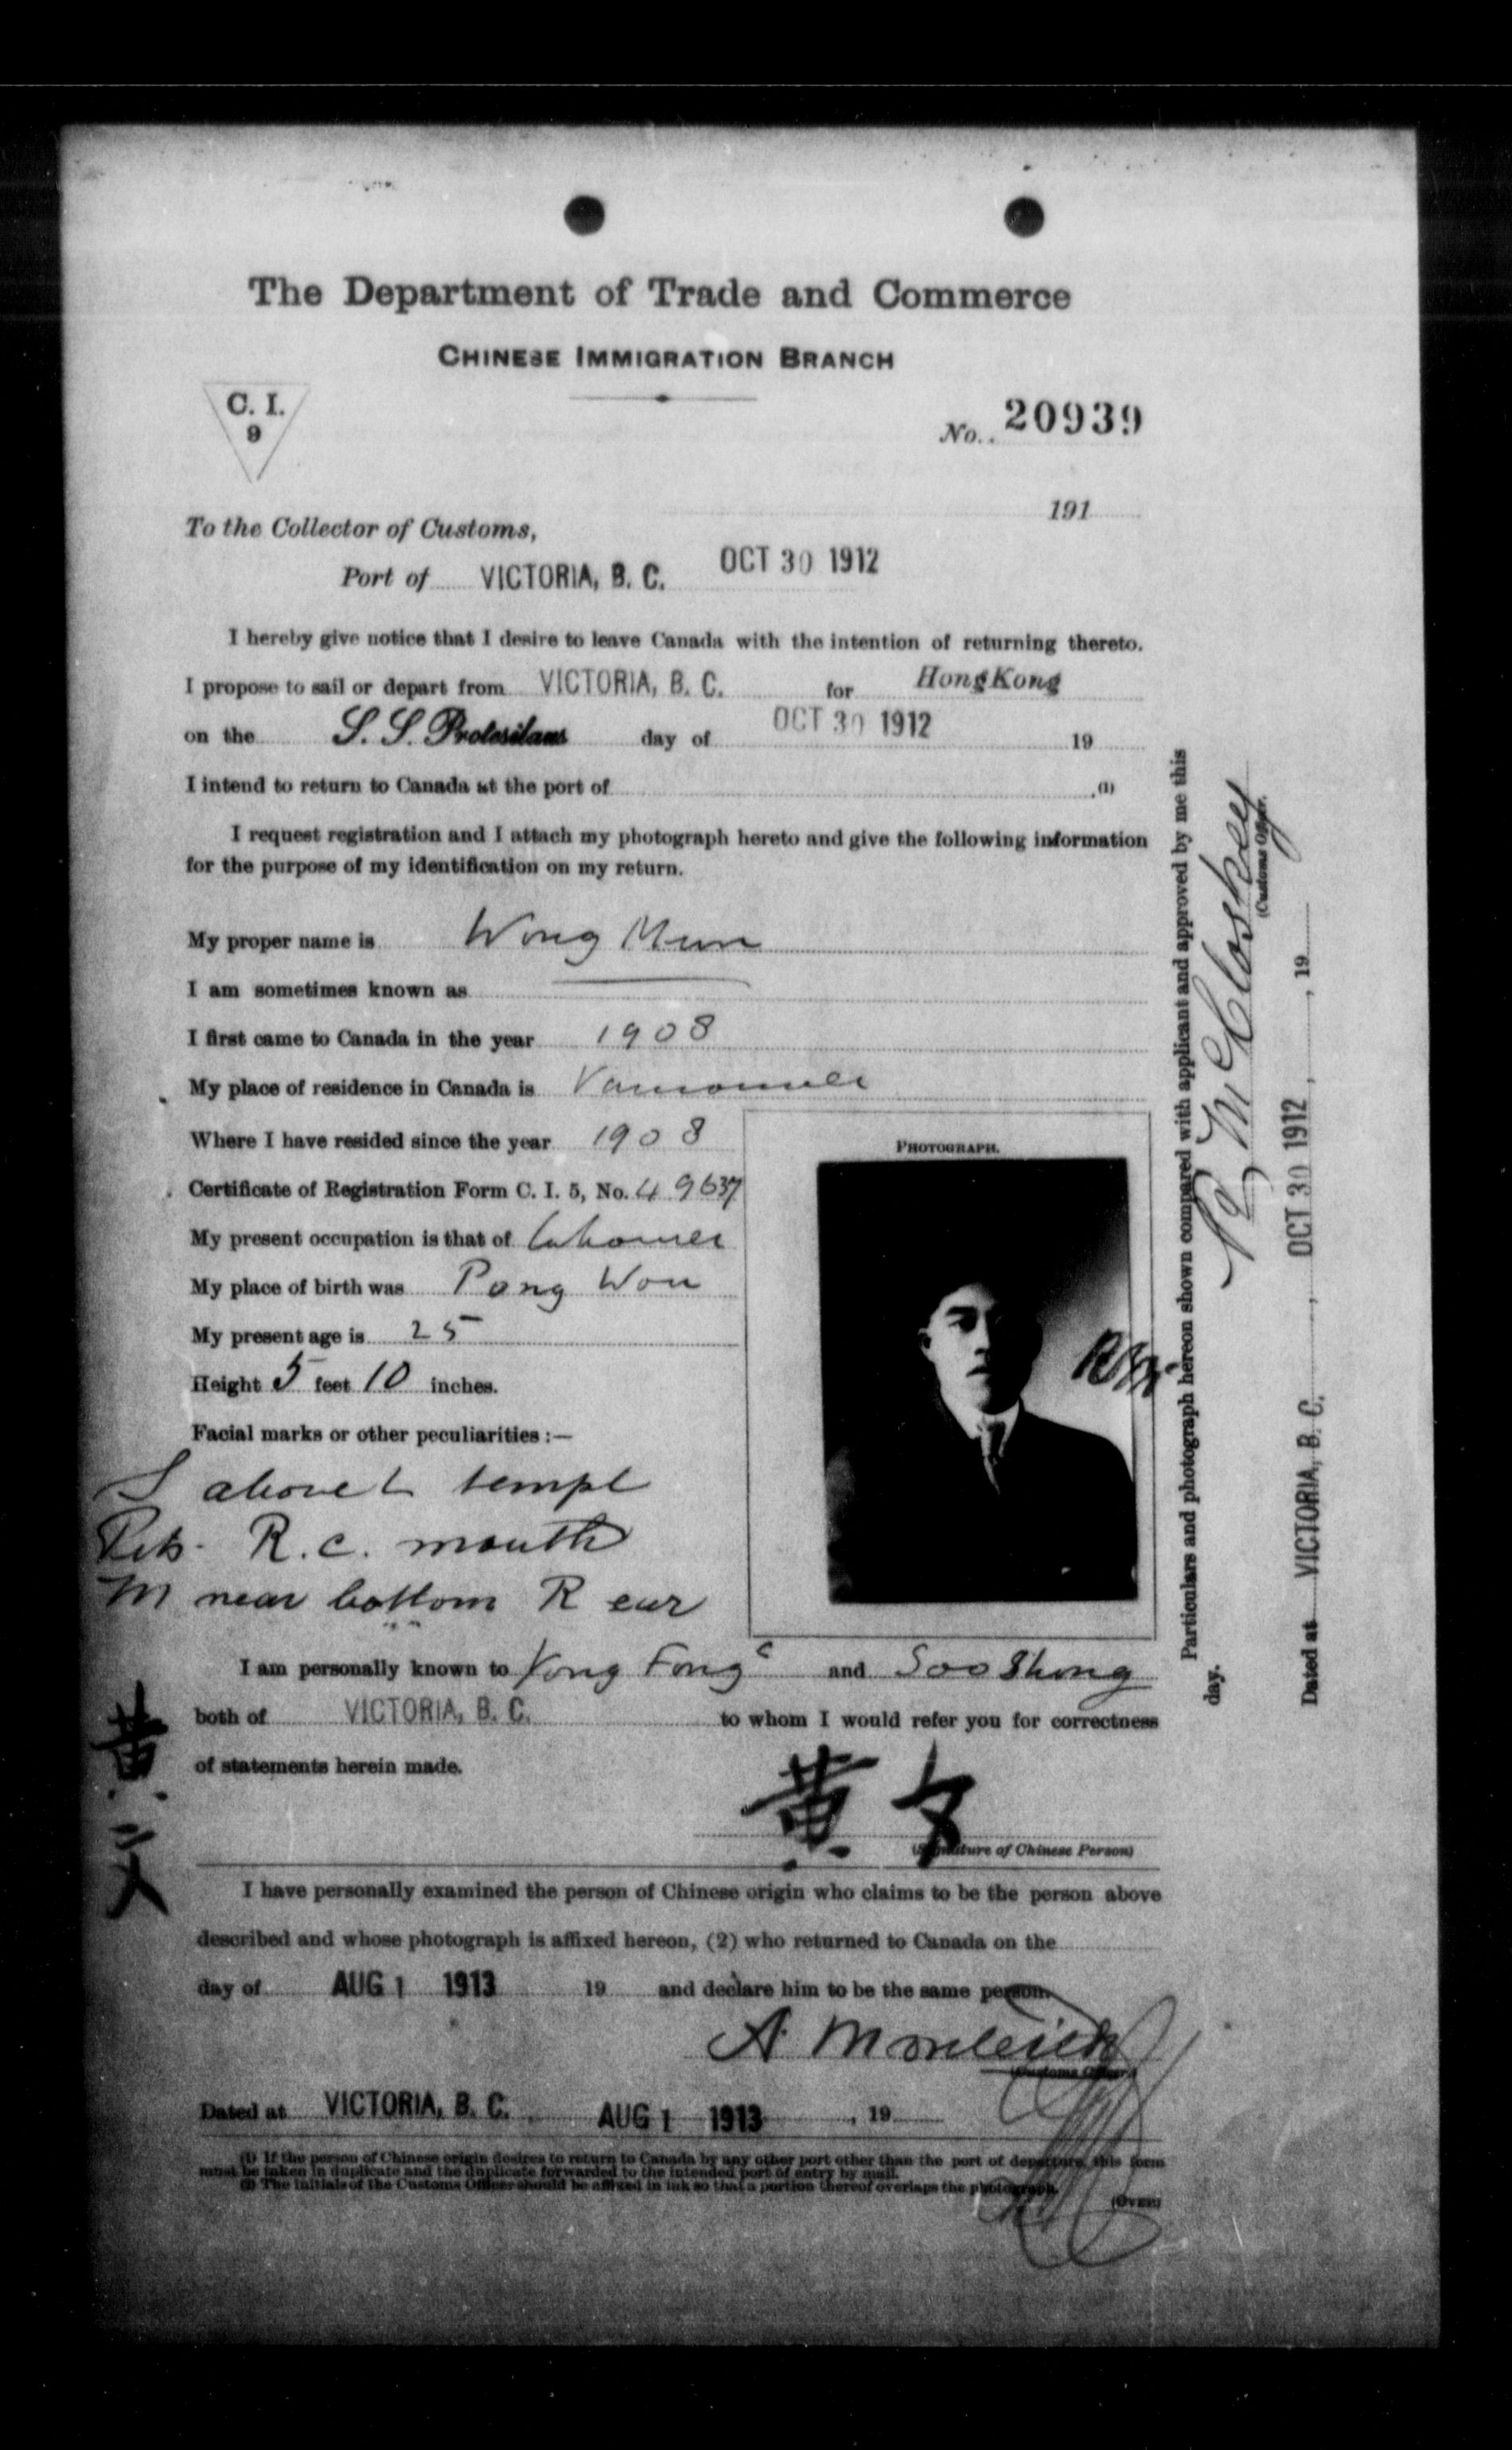 The Department of Trade and Commerce
CHINESE IMMIGRATION BRANCH
C. I.
9
No. 20939
191
To the Collector of Customs,
Port of VICTORIA, B. C. OCT 30 1912
I hereby give notice that I desire to leave Canada with the intention of returning thereto.
I propose to sail or depart from VICTORIA, B. C. for HongKong
on the S. S. Protesilaus day of OCT 30 1912 19
I intend to return to Canada at the port of (1)
I request registration and I attach my photograph hereto and give the following information
for the purpose of my identification on my return.
My proper name is Wong Mun
I am sometimes known as
I first came to Canada in the year 1908
My place of residence in Canada is Vancouver
Where I have resided since the year 1908
Certificate of Registration Form C. I. 5, No. 49637
My present occupation is that of Labourer
My place of birth was Pong Won
My present age is 25
Height 5 feet 10 inches.
Facial marks or other peculiarities :—
S above L templ
Pits. R. c. mouth
M near bottom R ear
PHOTOGRAPH.
I am personally known to Yong Fong and Soo Shong
both of VICTORIA, B. C. to whom I would refer you for correctness
of statements herein made.
黄文
黄文
(Signature of Chinese Person)
I have personally examined the person of Chinese origin who claims to be the person above
described and whose photograph is affixed hereon, (2) who returned to Canada on the
day of AUG 1 1913 19 and declare him to be the same person.
A.
(Customs Officer)
Dated at VICTORIA, B. C. AUG 1 1913, 19
(1) If the person of Chinese origin desires to return to Canada by any other port other than the port of departure, this form
must be taken in duplicate and the duplicate forwarded to the intended port of entry by mail.
(2) The initials of the Customs Officer should be affixed in ink so that a portion thereof overlaps the photograph.
(OVER)
Particulars and photograph hereon shown compared with applicant and approved by me this
day.
McCloskey
(Customs Officer.
Dated at VICTORIA, B. C. , OCT 30 1912 , 19